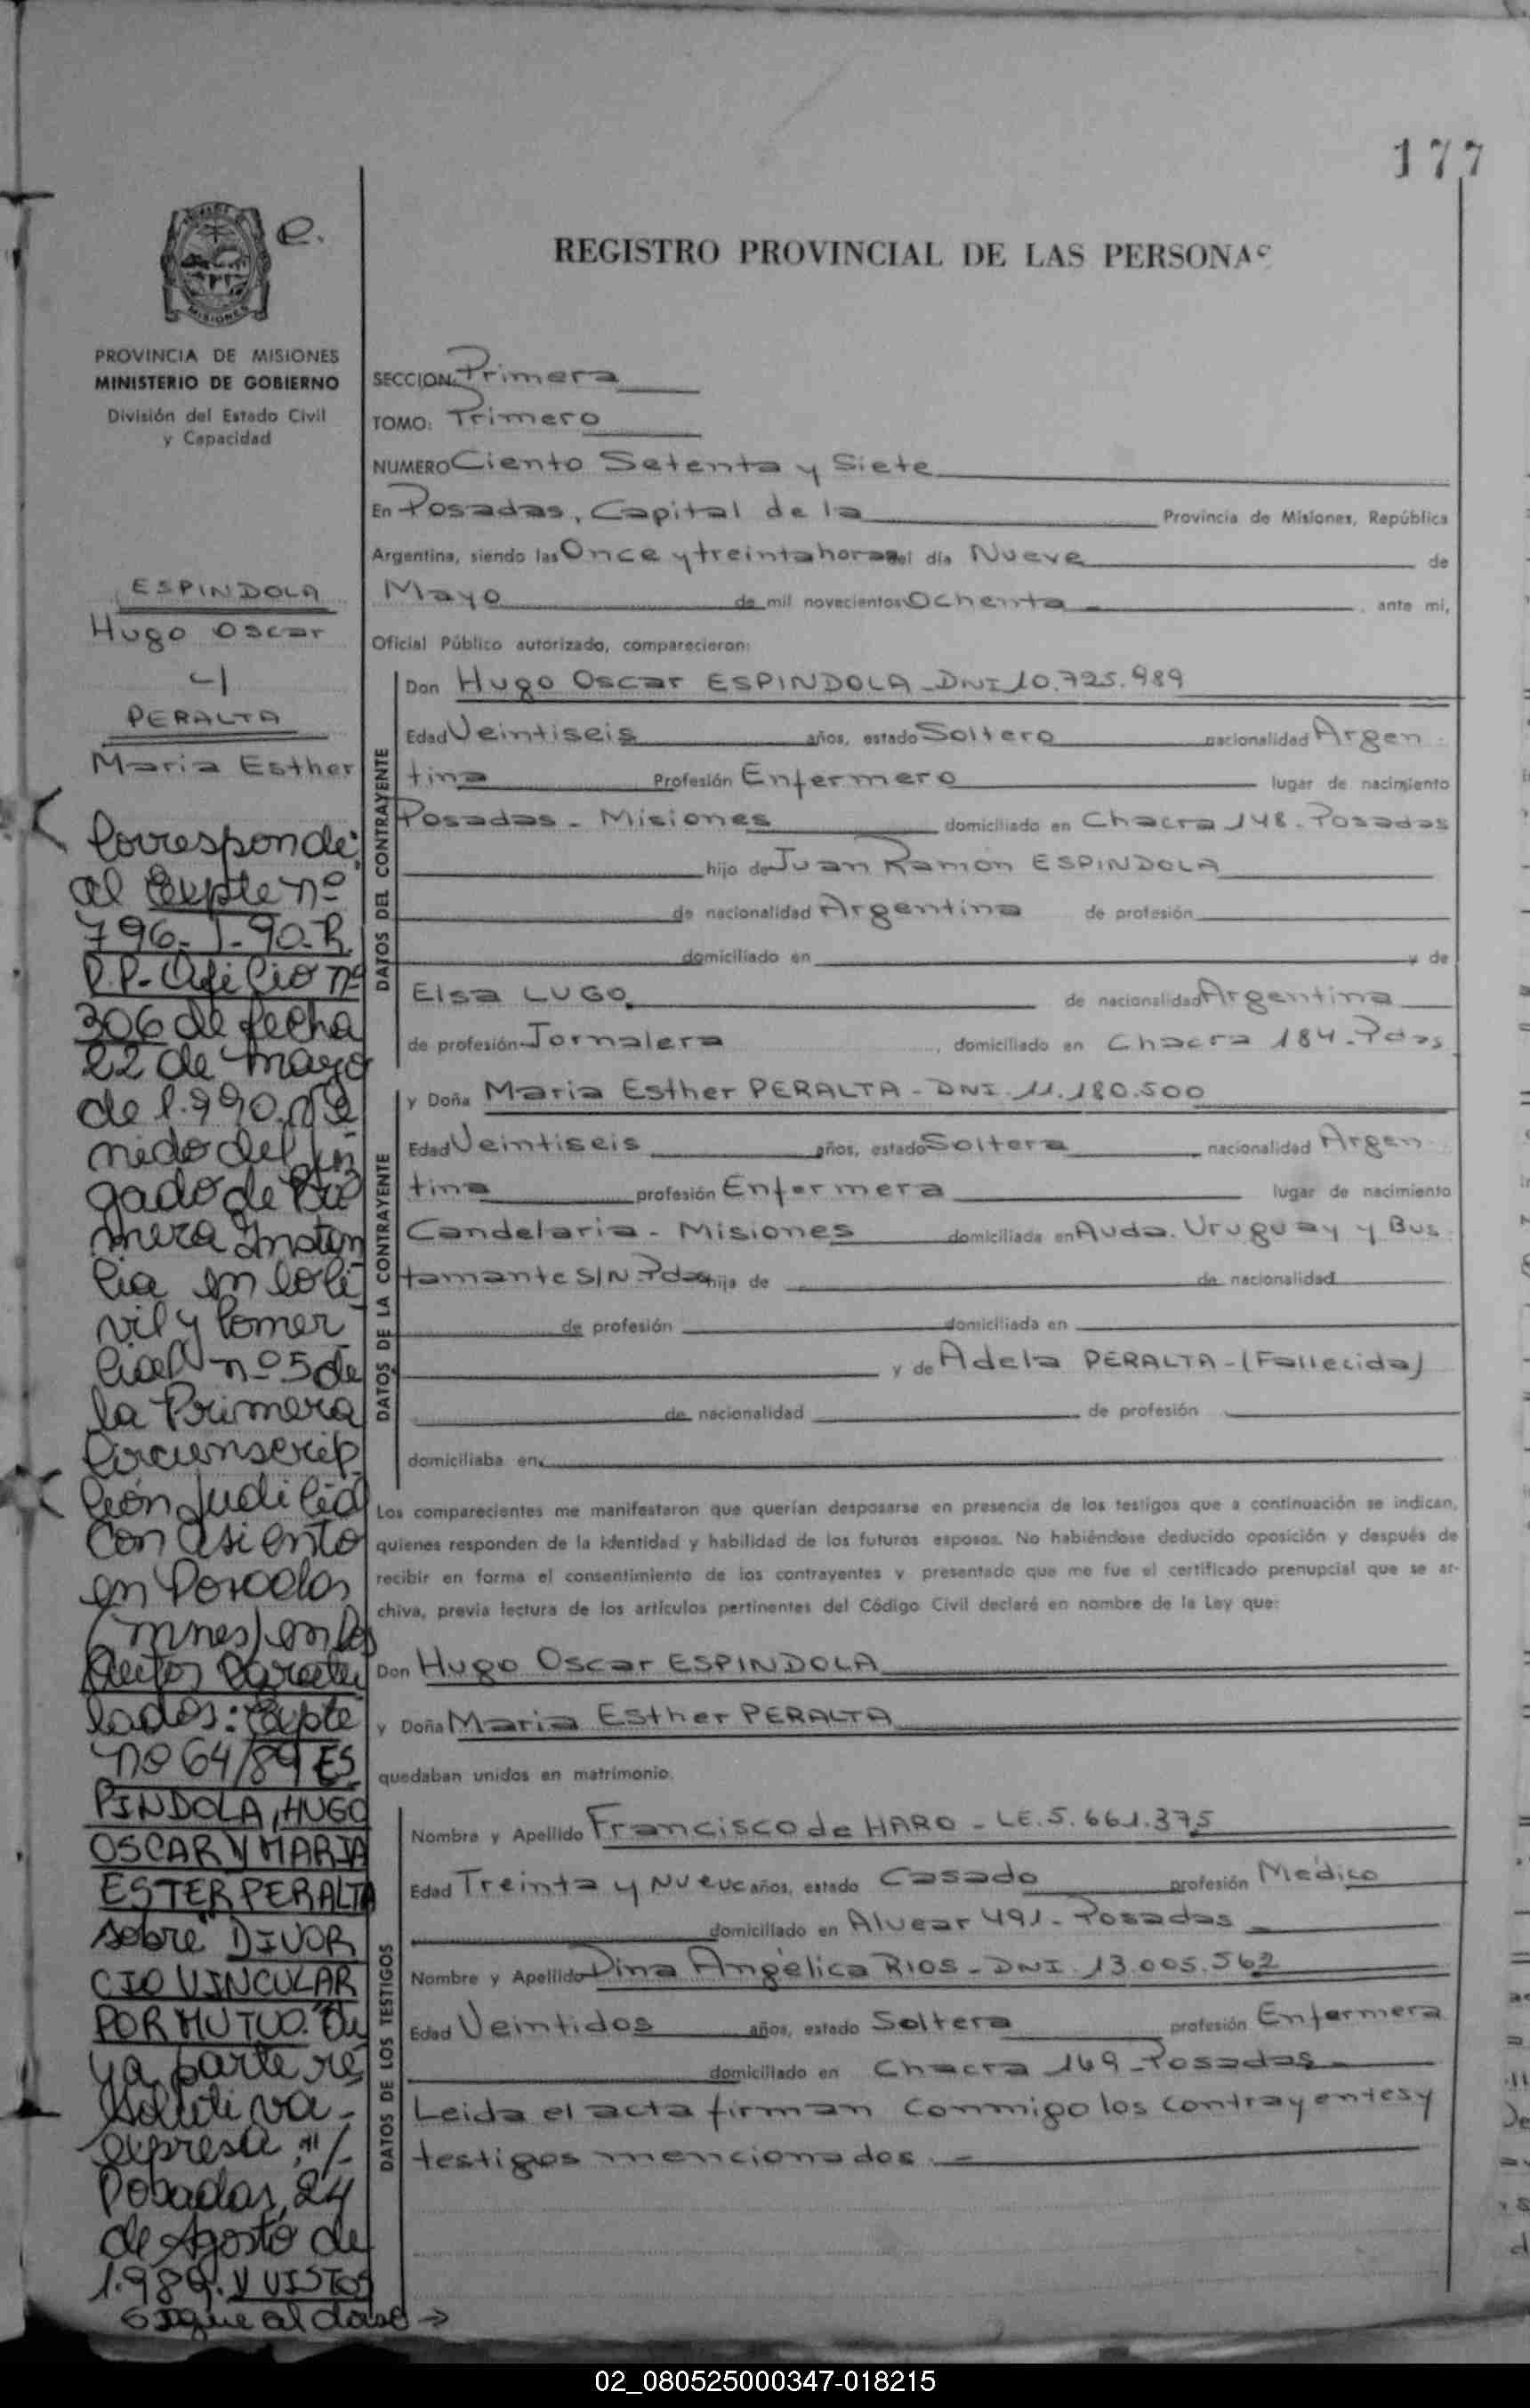 177
e.
REGISTRO PROVINCIAL DE LAS PERSONAS
MISIONES
PROVINCIA DE MISIONES
MINISTERIO DE GOBIERNO
División del Estado Civil
y Capacidad
SECCION: Primera
TOMO: Primero
NUMERO Ciento Setenta y Siete
En Posadas, Capital de la Provincia de Misiones, República
Argentina, siendo las Once y treinta horas del día Nueve de
Mayo de mil novecientos Ochenta - , ante mi,
Oficial Público autorizado, comparecieron:
ESPINDOLA
Hugo Oscar
y
PERALTA
Maria Esther
DATOS DEL CONTRAYENTE
Don Hugo Oscar ESPINDOLA - DNI 10.725.989
Edad Veintiseis años, estado Soltero nacionalidad Argen
tina Profesión Enfermero lugar de nacimiento
Posadas - Misiones domiciliado en Chacra 148 - Posadas
hijo de Juan Ramón ESPINDOLA
de nacionalidad Argentina de profesión
domiciliado en y de
Elsa LUGO de nacionalidad Argentina
de profesión Jornalera , domiciliado en Chacra 184 - Pdas
DATOS DE LA CONTRAYENTE
y Doña Maria Esther PERALTA - DNI. 11.180.500
Edad Veintiseis años, estado Soltera nacionalidad Argen
tina profesión Enfermera lugar de nacimiento
Candelaria - Misiones domiciliada en Avda. Uruguay y Bus
tamante S/N. Pdas hija de de nacionalidad
de profesión domiciliada en
y de Adela PERALTA - (Fallecida)
de nacionalidad de profesión
domiciliaba en
Los comparecientes me manifestaron que querían desposarse en presencia de los testigos que a continuación se indican,
quienes responden de la identidad y habilidad de los futuros esposos. No habiéndose deducido oposición y después de
recibir en forma el consentimiento de los contrayentes y presentado que me fue el certificado prenupcial que se ar-
chiva, previa lectura de los artículos pertinentes del Código Civil declaré en nombre de la Ley que:
Don Hugo Oscar ESPINDOLA
y Doña Maria Esther PERALTA
quedaban unidos en matrimonio.
DATOS DE LOS TESTIGOS
Nombre y Apellido Francisco de HARO - LE. 5.661.375
Edad Treinta y Nueve años, estado Casado profesión Médico
domiciliado en Alvear 491 - Posadas
Nombre y Apellido Dina Angélica RIOS - DNI 13.005.562
Edad Veintidos años, estado Soltera profesión Enfermera
domiciliado en Chacra 149 - Posadas -
Leida el acta firman conmigo los contrayentes y
testigos mencionados. -
Corresponde:
al Expte nº
796- -90-R.
P.P.- Oficio nº
306 de fecha
22 de mayo
de 1.990.
nido del Juz
gado de Pri
mera Instan
cia en lo Ci
vil y Comer
cial nº 5 de
la Primera
Circunscrip
ción Judicial
con asiento
en Posadas
(mnes) en los
autos caratu
lados: Expte
nº 64/89 ES
PINDOLA, HUGO
OSCAR Y MARIA
ESTER PERALTA
sobre "DIVOR
CIO VINCULAR
POR MUTUO. Cu
ya parte re
solutiva -
expresa: "/-
Posadas, 24
de Agosto de
1.989. Y VISTOS
Sigue al dorso →
02_080525000347-018215